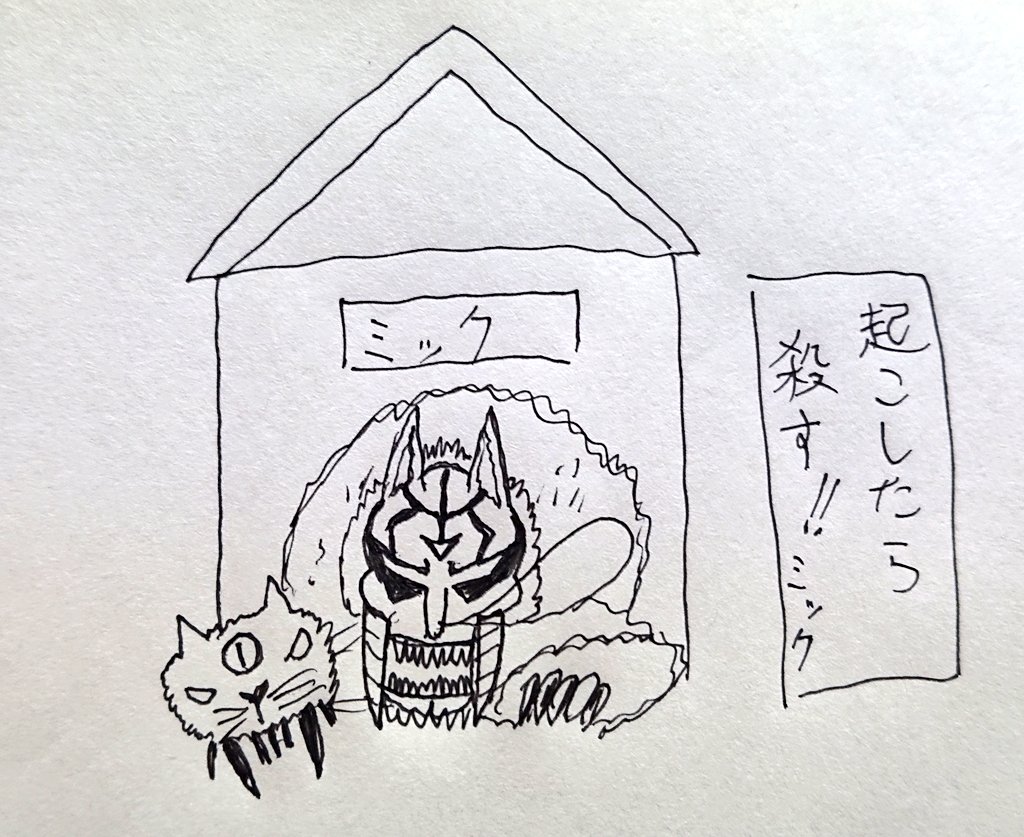 ミック
起こしたら
殺す!!ミック